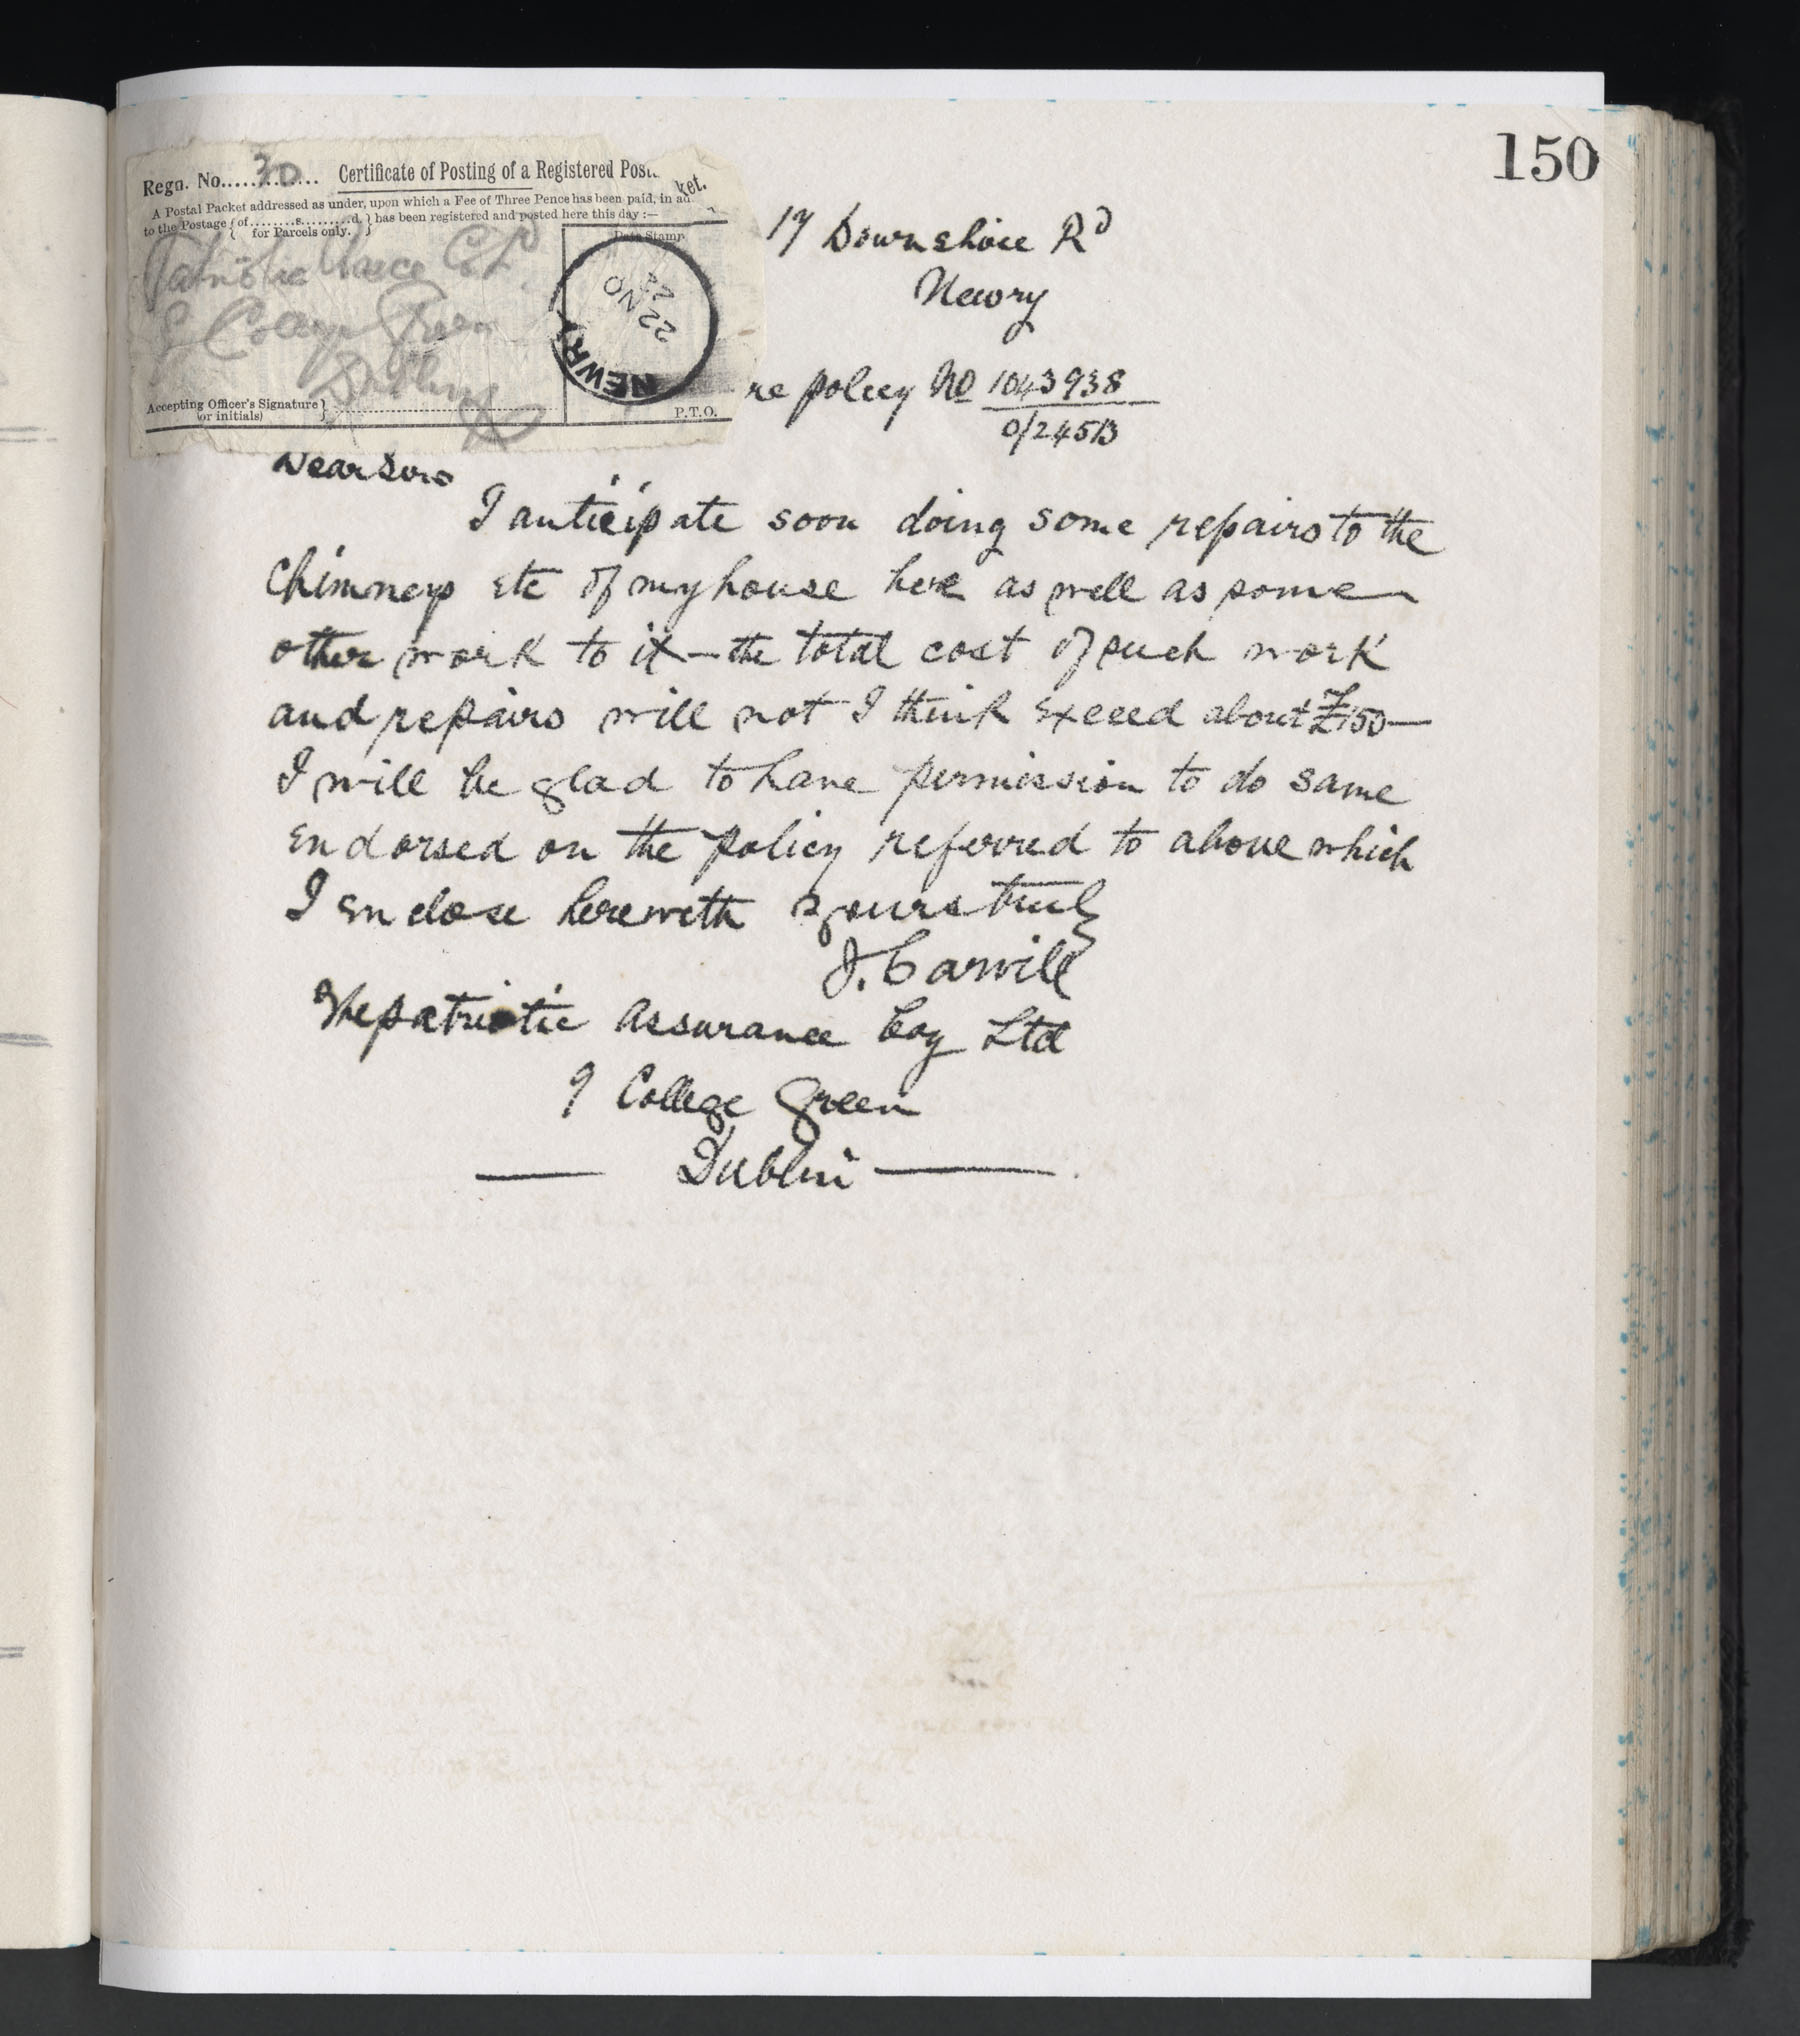 150
Regn. No. 30 Certificate of Posting of a Registered Post ket.
A Postal Packet addressed as under, upon which a Fee of Three Pence has been paid, in ad
to the Postage { of ........s.........d. } has been registered and posted here this day :—
for Parcels only.
Date Stamp
Patriotic Co Ld
College Green
Dublin
NEWRY
22 NO
Accepting Officer's Signature }
(or initials)
P.T.O.
17 Downshire Rd
Newry
re policy No 1043938
0/245B
Dear Sirs
I anticipate soon doing some repairs to the
Chimneys etc of my house here as well as some
other work to it — the total cost of such work
and repairs will not I think exceed about £150 —
I will be glad to have permission to do same
endorsed on the policy referred to above which
I enclose herewith yours truly
J. Carvill
The patriotic assurance Coy Ltd
9 College Green
— Dublin —